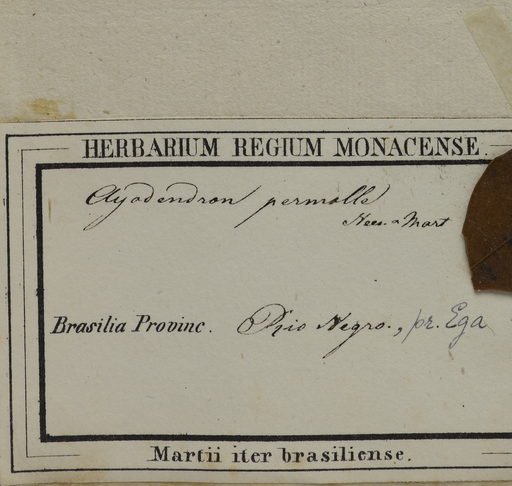 HERBARIUM REGIUM MONACENSE.
Ayodendron permolle
Nees. & Mart
Brasilia Provinc. Rio Negro., pr. Ega
Martii iter brasiliense.